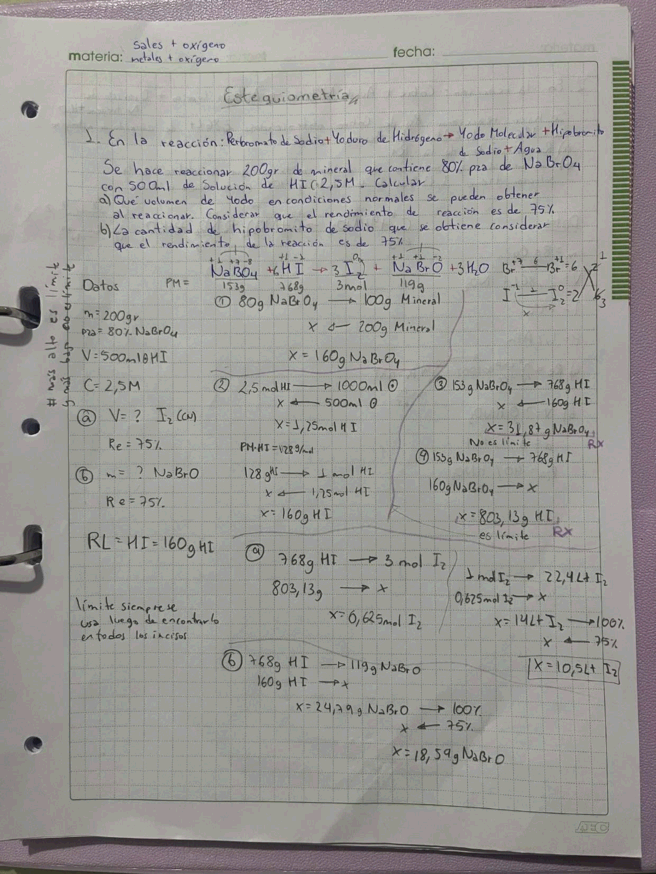 materia: sales + oxígeno
metales + oxígeno
fecha:
Estequiometría
1. En la reacción: Perbromato de Sodio + Yoduro de Hidrógeno → Yodo Molecular + Hipobromito
de Sodio + Agua
Se hace reaccionar 200gr de mineral que contiene 80% pza de NaBrO4
con 500ml de Solución de HI C 2,5M. Calcular
a) Qué volumen de Yodo en condiciones normales se pueden obtener
al reaccionar. Considerar que el rendimiento de reacción es de 75%
b) La cantidad de hipobromito de sodio que se obtiene considerar
que el rendimiento de la reacción es de 75%
# mas alto es limite
Datos
m = 200gr
pza = 80% NaBrO4
V = 500ml HI
C = 2,5M
a) V = ? I2 (CN)
Re = 75%
b) m = ? NaBrO
Re = 75%
RL = HI = 160g HI
límite siempre se
usa luego de encontrarlo
en todos los incisos
+1 +7 -8 +1 -1 0 +1 +1 -2
NaBO4 + 6HI → 3I2 + NaBrO + 3H2O
PM = 153g 768g 3mol 119g
Br+7 6 Br+1 = 6 2 1
I-1 2 I2 0 = 2 6 3
x
① 80g NaBrO4 → 100g Mineral
x ← 200g Mineral
x = 160g NaBrO4
② 2,5mol HI → 1000ml
x ← 500ml
x = 1,25mol HI
PM·HI = 128g/mol
128gHI → 1mol HI
x ← 1,25mol HI
x = 160g HI
③ 153g NaBrO4 → 768g HI
x ← 160g HI
x = 31,87g NaBrO4
No es límite RX
④ 153g NaBrO4 → 768g HI
160g NaBrO4 → x
x = 803,13g HI
es límite RX
a) 768g HI → 3mol I2
803,13g → x
x = 0,625mol I2
1mol I2 → 22,4Lt I2
0,625mol I2 → x
x = 14Lt I2 → 100%
x ← 75%
x = 10,5Lt I2
b) 768g HI → 119g NaBrO
160g HI → x
x = 24,79g NaBrO → 100%
x ← 75%
x = 18,59g NaBrO